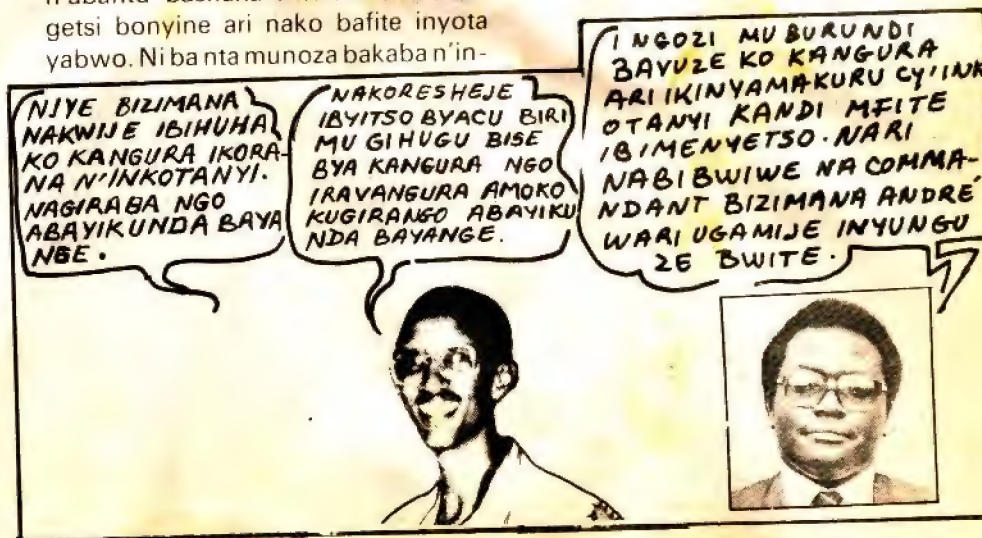 getsi bonyine ari nako bafite inyota
yabwo. Ni ba nta munoza bakaba n'in-
NJYE BIZIMANA
NAKWIJE IBIHUHA
KO KANGURA IKORA-
NA N'INKOTANYI.
NAGIRABA NGO
ABAYIKUNDA BAYA
NGE.
NAKORESHEJE
IBYITSO BYACU BIRI
MU GIHUGU BISE
BYA KANGURA NGO
IRAVANGURA AMOKO
KUGIRANGO ABAYIKU
NDA BAYANGE.
INGOZI MU BURUNDI
BAVUZE KO KANGURA
ARI IKINYAMAKURU CY'INK
OTANYI KANDI MFITE
IBIMENYETSO. NARI
NABIBWIWE NA COMMA-
NDANT BIZIMANA ANDRÉ
WARI UGAMIJE INYUNGU
ZE BWITE.